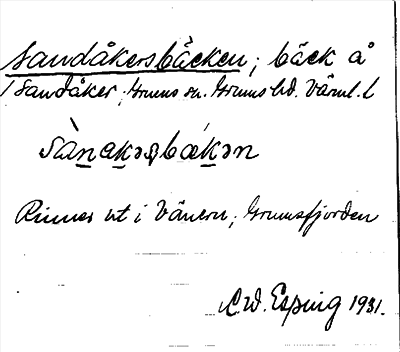 Sandåkersbäcken; bäck å
i Sandåker, Grums sn. Grums hd. Värml. l
sànakəʂbækən
Rinner ut i Vänern; Grumsfjorden
C.W. Esping 1931.